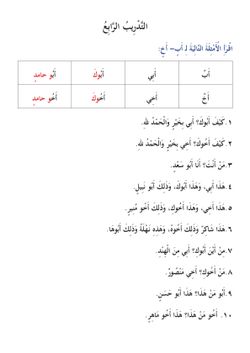 التَّدْرِيبُ الرَّابِعُ
اقْرَأْ الْأَمْثِلَةَ التَّالِيَةَ لـ أَبٍ – أَخٍ:
أَبٌ أَبِي أَبُوكَ أَبُو حَامِدٍ
أَخٌ أَخِي أَخُوكَ أَخُو حَامِدٍ
١. كَيْفَ أَبُوكَ؟ أَبِي بِخَيْرٍ وَالْحَمْدُ للهِ.
٢. كَيْفَ أَخُوكَ؟ أَخِي بِخَيْرٍ وَالْحَمْدُ للهِ.
٣. مَنْ أَنْتَ؟ أَنَا أَبُو سَعْدٍ.
٤. هَذَا أَبِي، وَهَذَا أَبُوكَ، وَذَلِكَ أَبُو نَبِيلٍ.
٥. هَذَا أَخِي، وَهَذَا أَخُوكَ، وَذَلِكَ أَخُو مُنِيرٍ.
٦. هَذَا شَاكِرٌ وَذَلِكَ أَخُوهُ، وَهَذِهِ نَهْلَةُ وَذَلِكَ أَبُوهَا.
٧. مِنْ أَيْنَ أَبُوكَ؟ أَبِي مِنَ الْهِنْدِ.
٨. مَنْ أَخُوكَ؟ أَخِي مَنْصُورٌ.
٩. أَبُو مَنْ هَذَا؟ هَذَا أَبُو حَسَنٍ.
١٠. أَخُو مَنْ هَذَا؟ هَذَا أَخُو مَاهِرٍ.